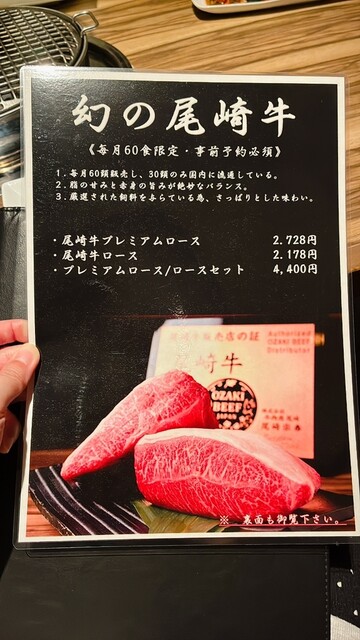 幻の尾崎牛
《毎月60食限定・事前予約必須》
1. 毎月60頭販売し、30頭のみ国内に流通している。
2. 脂の甘みと赤身の旨みが絶妙なバランス。
3. 厳選された飼料を与らている為、さっぱりとした味わい。
・尾崎牛プレミアムロース 2.728円
・尾崎牛ロース 2.178円
・プレミアムロース/ロースセット 4,400円
販売店の証
Authorized
OZAKI BEEF
Distributor
尾崎牛
OZAKI
BEEF
尾崎宗春
※ 裏面も御覧下さい。